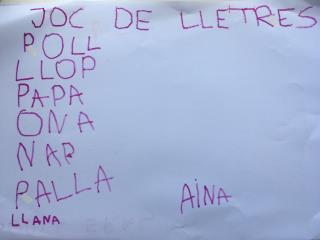 JOC DE LLETRES
POLL
LLOP
PAPA
ONA
NAP
PALLA
AiNA
LLANA